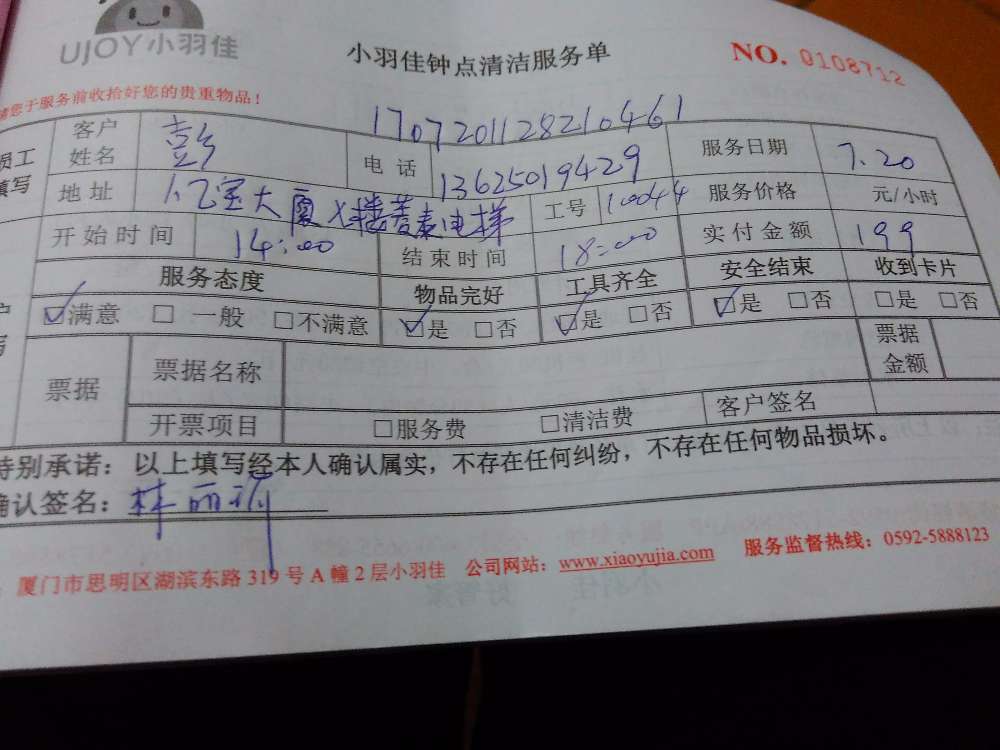 UJOY小羽佳
小羽佳钟点清洁服务单
NO. 0108712
您于服务前收拾好您的贵重物品！
1707201128210461
员工填写
客户姓名 彭 电话 13625019429 服务日期 7.20
地址 亿宝大厦 楼 电梯 工号 10044 服务价格 元/小时
开始时间 14:00 结束时间 18:00 实付金额 199
服务态度 物品完好 工具齐全 安全结束 收到卡片
☑满意 □一般 □不满意 ☑是 □否 ☑是 □否 ☑是 □否 □是 □否
票据 票据名称 票据金额
开票项目 □服务费 □清洁费 客户签名
特别承诺：以上填写经本人确认属实，不存在任何纠纷，不存在任何物品损坏。
确认签名：林丽
厦门市思明区湖滨东路 319 号 A 幢 2 层小羽佳 公司网站：www.xiaoyujia.com 服务监督热线：0592-5888123